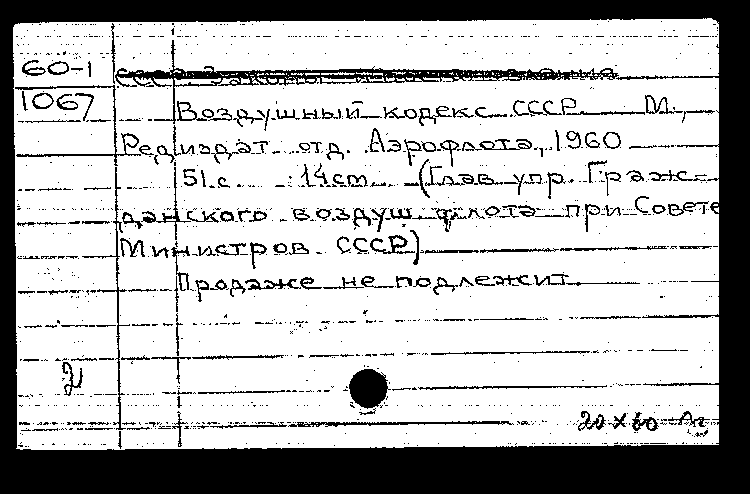 60-1 СССР. Законы и постановления
1067 Воздушный кодекс СССР М.,
Редиздат отд. Аэрофлота, 1960
51 с. 14cm. (Глав упр. Граж-
данского воздуш. флота при Совете
Министров СССР)
Продаже не подлежит.
20 X 60